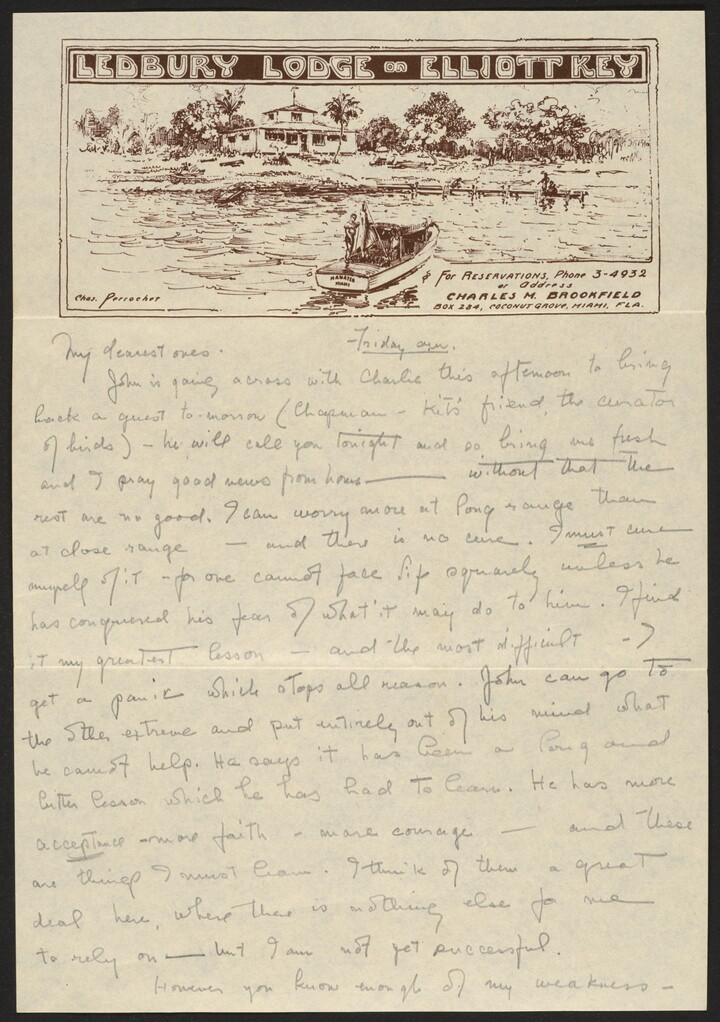 LEDBURY LODGE ON ELLIOTT KEY
MANATEE
MIAMI
For RESERVATIONS, Phone 3-4932
or Address
CHARLES M. BROOKFIELD
BOX 284, COCONUT GROVE, MIAMI, FLA.
Chas. Perrochet
My dearest ones. Friday a.m.
John is going across with Charlie this afternoon to bring
back a guest to-morrow (Chapman - Kit's friend, the curator
of birds) - he will call you tonight and so bring me fresh
and I pray good news from home — without that the
rest are no good. I can worry more at long range than
at close range — and there is no cure. I must cure
myself of it - for one cannot face life squarely unless he
has conquered his fear of what it may do to him. I find
it my greatest lesson — and the most difficult - I
get a panic which stops all reason. John can go to
the other extreme and put entirely out of his mind what
he cannot help. He says it has been a long and
bitter lesson which he has had to learn. He has more
acceptance - more faith - more courage — and these
are things I must learn. I think of them a great
deal here, where there is nothing else for me
to rely on — but I am not yet successful.
However you know enough of my weakness -